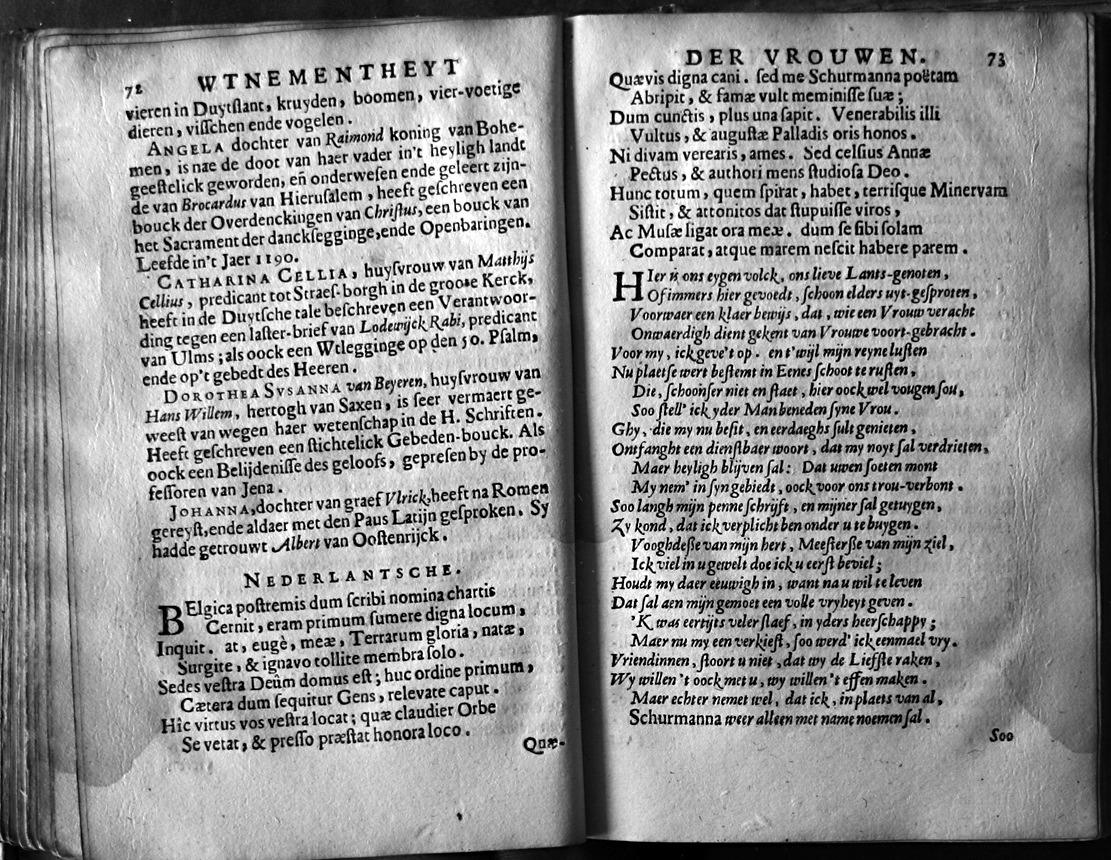 72 WTNEMENTHEYT
vieren in Duytſlant, kruyden, boomen, vier-voetige
dieren, viſſchen ende vogelen.
ANGELA dochter van Raimond koning van Bohe-
men, is nae de doot van haer vader in't heyligh landt
geeſtelick geworden, en̄ onderweſen ende geleert zijn-
de van Brocardus van Hieruſalem, heeft geſchreven een
bouck der Overdenckingen van Chriſtus, een bouck van
het Sacrament der danckſegginge, ende Openbaringen.
Leefde in't Jaer 1190.
CATHARINA CELLIA, huyſvrouw van Matthijs
Cellius, predicant tot Straeſ-borgh in de groote Kerck,
heeft in de Duytſche tale beſchreven een Verantwoor-
ding tegen een laſter-brief van Lodewijck Rabi, predicant
van Ulms; als oock een Wtlegginge op den 50. Pſalm,
ende op't gebedt des Heeren.
DOROTHEA SVSANNA van Beyeren, huyſvrouw van
Hans Willem, hertogh van Saxen, is ſeer vermaert ge-
weeſt van wegen haer wetenſchap in de H. Schriften.
Heeft geſchreven een ſtichtelick Gebeden-bouck. Als
oock een Belijdeniſſe des geloofs, gepreſen by de pro-
feſſoren van Jena.
JOHANNA, dochter van graef Vlrick, heeft na Romen
gereyſt, ende aldaer met den Paus Latijn geſproken. Sy
hadde getrouwt Albert van Ooſtenrijck.
NEDERLANTSCHE.
BElgica poſtremis dum ſcribi nomina chartis
Cernit, eram primum ſumere digna locum,
Inquit. at, eugè, meæ, Terrarum gloria, natæ,
Surgite, & ignavo tollite membra ſolo.
Sedes veſtra Deûm domus eſt; huc ordine primum,
Cætera dum ſequitur Gens, relevate caput.
Hîc virtus vos veſtra locat; quæ claudier Orbe
Se vetat, & preſſo præſtat honora loco.
Quæ-
DER VROUWEN. 73
Quævis digna cani. ſed me Schurmanna poëtam
Abripit, & famæ vult meminiſſe ſuæ;
Dum cunctis, plus una ſapit. Venerabilis illi
Vultus, & auguſtæ Palladis oris honos.
Ni divam verearis, ames. Sed celſius Annæ
Pectus, & authori mens ſtudioſa Deo.
Hunc totum, quem ſpirat, habet, terriſque Minervam
Siſtit, & attonitos dat ſtupuiſſe viros,
Ac Muſæ ligat ora meæ. dum ſe ſibi ſolam
Comparat, atque marem neſcit habere parem.
HIer is ons eygen volck, ons lieve Lants-genoten,
Of immers hier gevoedt, ſchoon elders uyt-geſproten,
Voorwaer een klaer bewijs, dat, wie een Vrouw veracht
Onwaerdigh dient gekent van Vrouwe voort-gebracht.
Voor my, ick geve't op. en t'wijl mijn reyne luſten
Nu plaetſe wert beſtemt in Eenes ſchoot te ruſten,
Die, ſchoonſer niet en ſtaet, hier oock wel vougen ſou,
Soo ſtell' ick yder Man beneden ſyne Vrou.
Ghy, die my nu beſit, en eerdaeghs ſult genieten,
Ontfanght een dienſtbaer woort, dat my noyt ſal verdrieten,
Maer heyligh blijven ſal: Dat uwen ſoeten mont
My nem' in ſyn gebiedt, oock voor ons trou-verbont.
Soo langh mijn penne ſchrijft, en mijner ſal getuygen,
Zy kond, dat ick verplicht ben onder u te buygen.
Vooghdeſſe van mijn hert, Meeſterſſe van mijn ziel,
Ick viel in u gewelt doe ick u eerſt beviel;
Houdt my daer eeuwigh in, want na u wil te leven
Dat ſal aen mijn gemoet een volle vryheyt geven.
'K was eertijts veler ſlaef, in yders heerſchappy;
Maer nu my een verkieſt, ſoo werd' ick eenmael vry.
Vriendinnen, ſtoort u niet, dat wy de Liefſte raken,
Wy willen 't oock met u, wy willen 't effen maken.
Maer echter nemet wel, dat ick, in plaets van al,
Schurmanna weer alleen met name noemen ſal.
Soo